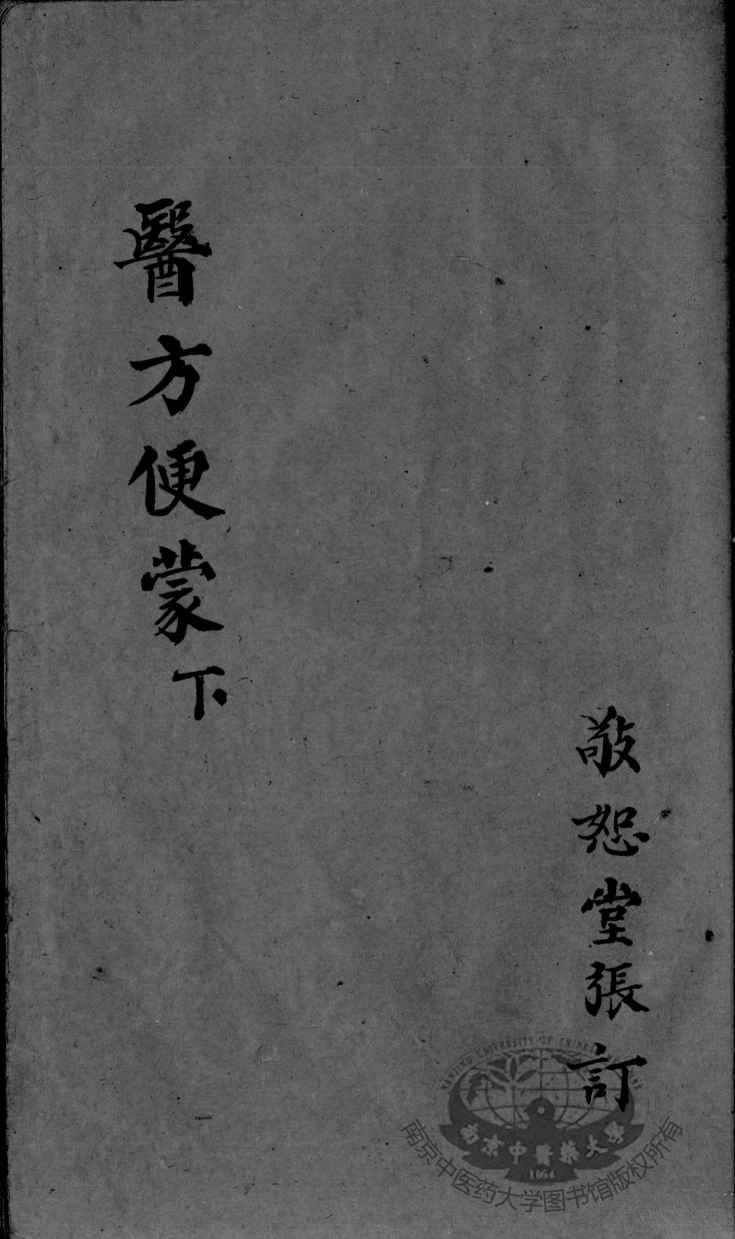 敬恕堂張訂
醫方便蒙下
南京中醫藥大學
1954
南京中医药大学图书馆版权所有